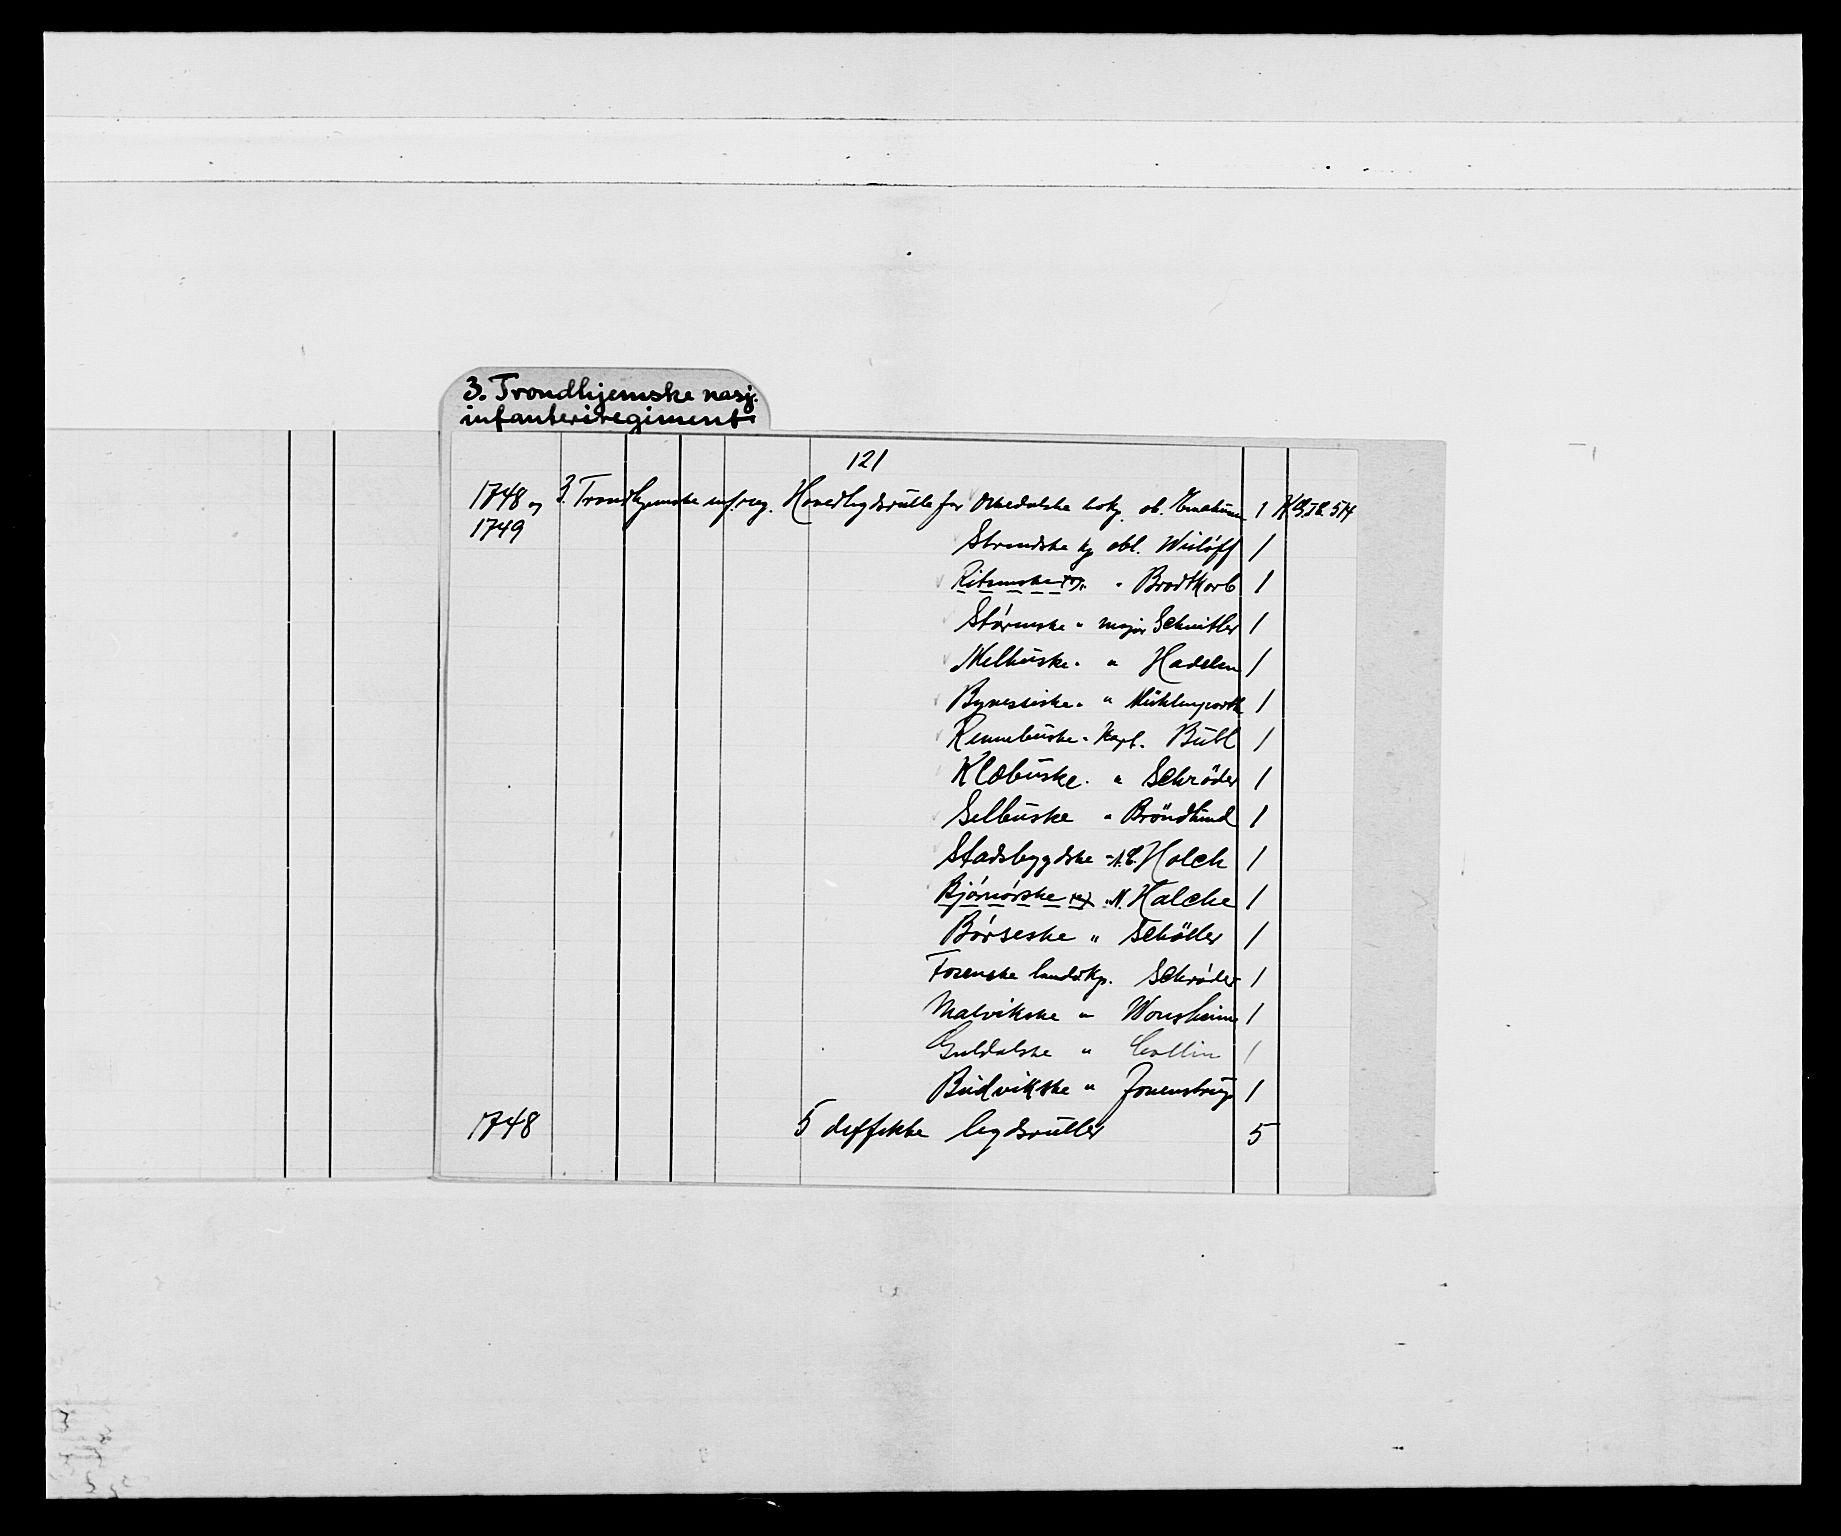 3. Trondhjemske nasj.
infanteriregiment
121
1748 og 3. Trondhjemske inf.reg. Hovedlegdsrulle for Orkedalske kp. ob. 1 K.G.IX. 514
1749 Strindske kp obl. Wislöff 1
Ritsemske kp. " Brodtkorb 1
Störenske " major Schnitler 1
Melhuske " " Hadelen 1
Bynesseiske " " 1
Rennebuske " kapt. Bull 1
Klæbuske " " Schröder 1
Selbuske " Bröndlund 1
Stadsbygdske " A.C. Holck 1
Bjørnørske kp. " N. Halcke 1
Börseske " Schöller 1
Fosenske landv.kp. Schrøder 1
Malvikske " Wonsheim 1
Guldalske " Collin 1
Budvikske " Jonenstrup 1
1748 5 deffekte legdsruller 5